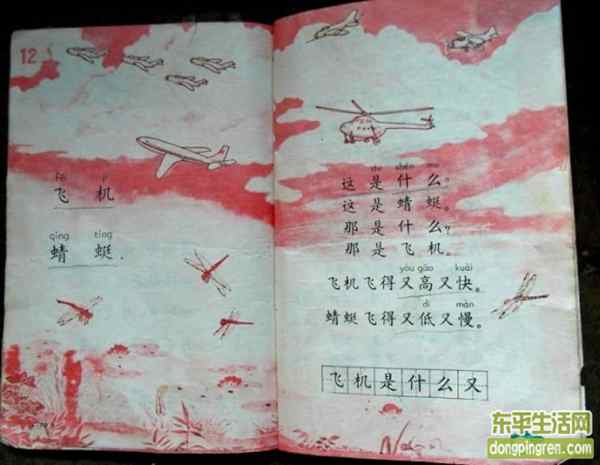 12
飞 机
qīng tíng
蜻 蜓
shén me
这 是 什 么。
这 是 蜻 蜓。
那 是 什 么?
那 是 飞 机。
yòu gāo kuài
飞机飞得又高又快。
dī màn
蜻蜓飞得又低又慢。
飞机是什么又
东平生活网
dongpingren.com